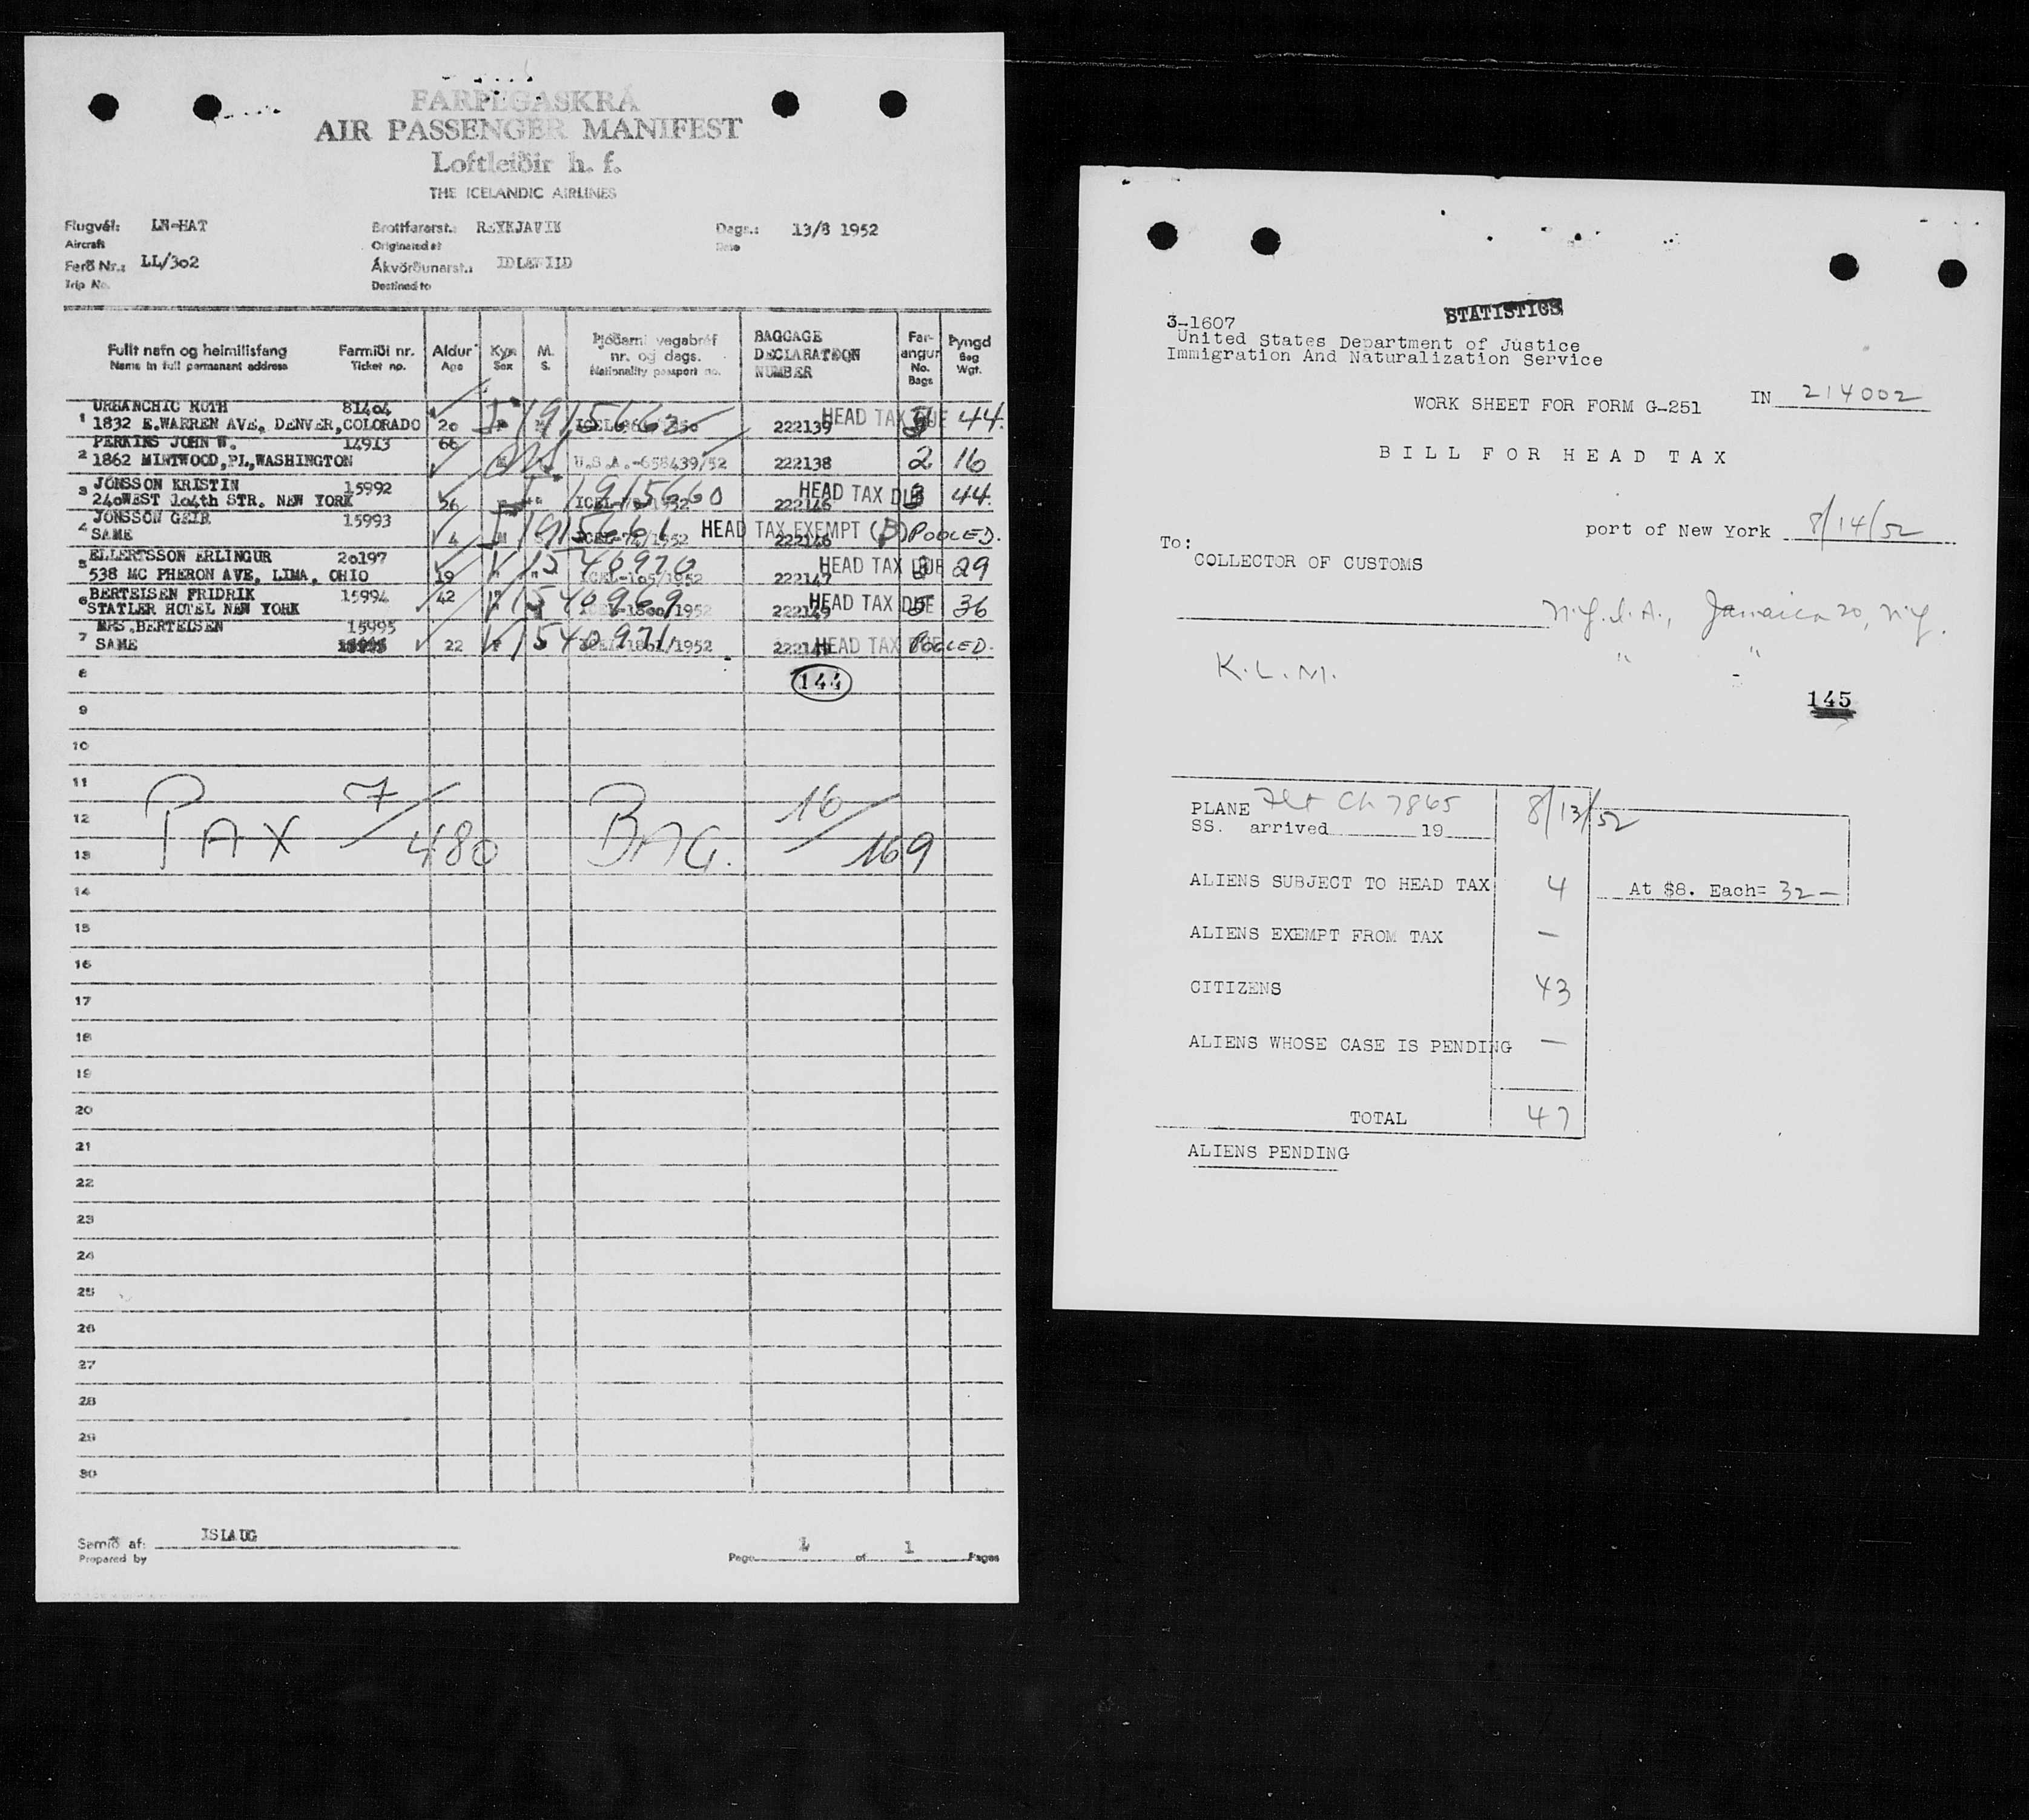 FARÞEGASKRÁ
AIR PASSENGER MANIFEST
Loftleiðir h. f.
THE ICELANDIC AIRLINES
Flugvél: LN-HAT Brottfararst.: REYKJAVIK Dags.: 13/8 1952
Aircraft Originated at Date
Ferð Nr.: LL/302 Ákvörðunarst.: IDLEWILD
Trip No. Destined to
Fullt nafn og heimilisfang Farmiði nr. Aldur Kyn M. Þjóðerni vegabréf nr. og dags. BAGGAGE DECLARATION NUMBER Farangur Þyngd
Name in full permanent address Ticket no. Age Sex S. Nationality passport no. No. Bags Bag Wgt.
URBANCHIC RUTH 81404
1 1832 E.WARREN AVE, DENVER,COLORADO 20 222139 HEAD TAX DUE 44.
PERKINS JOHN W. 14913 66
2 1862 MINTWOOD,PL,WASHINGTON U.S.A.-658439/52 222138 2 16
JONSSON KRISTIN 15992 1915660 HEAD TAX DUE
3 240WEST 104th STR. NEW YORK 26 222145 3 44.
JONSSON GEIR 15993 1915661 HEAD TAX EXEMPT (B) POOLED.
4 SAME 4 M 222146
ELLERTSSON ERLINGUR 20197 1540970 HEAD TAX DUE
5 538 MC PHERON AVE, LIMA, OHIO 19 ICEL-105/1952 222147 29
BERTELSEN FRIDRIK 15994 42 1540969 HEAD TAX DUE
6 STATLER HOTEL NEW YORK 222149 36
MRS.BERTELSEN 15995 1540971
7 SAME 22 F HEAD TAX DUE POOLED.
8 144
9
10
11
12
13
PAX 7/480 BAG. 16/169
14
15
16
17
18
19
20
21
22
23
24
25
26
27
28
29
30
Samið af: ISLAUG
Prepared by Page 1 of 1 Pages
STATISTICS
3-1607
United States Department of Justice
Immigration And Naturalization Service
WORK SHEET FOR FORM G-251 IN 214002
BILL FOR HEAD TAX
port of New York 8/14/52
To:
COLLECTOR OF CUSTOMS
N.Y.I.A., Jamaica 20, N.Y.
K.L.M. " "
145
PLANE Flt Ch 7865 8/13/52
SS. arrived 19
ALIENS SUBJECT TO HEAD TAX 4 At $8. Each= 32 —
ALIENS EXEMPT FROM TAX —
CITIZENS 43
ALIENS WHOSE CASE IS PENDING —
TOTAL 47
ALIENS PENDING